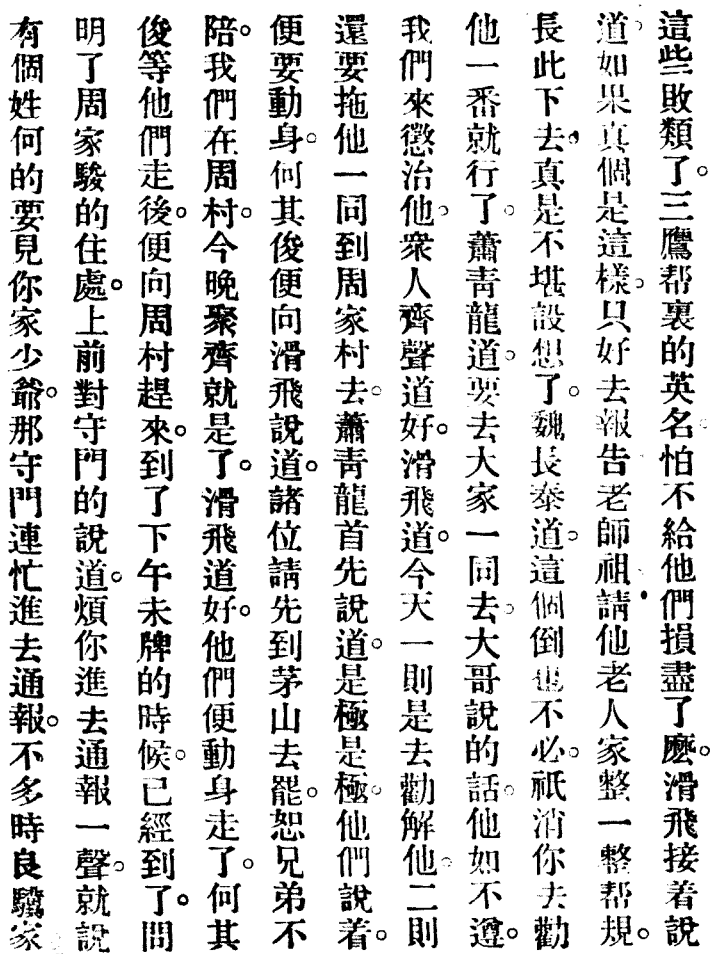 這些敗類了。三鷹帮裏的英名。怕不給他們損盡了麽。滑飛接着說
道。如果真個是這樣。只好去報告老師祖、請他老人家整一整帮規。
長此下去。真是不堪設想了。魏長泰道。這個倒也不必。祇消你去勸
他一番就行了。蕭青龍道。要去大家一同去。大哥說的話。他如不遵。
我們來懲治他。衆人齊聲道好。滑飛道。今天一則是去勸解他。二則
還要拖他一同到周家村去。蕭青龍首先說道。是極是極。他們說着。
便要動身。何其俊便向滑飛說道。諸位請先到茅山去罷。恕兄弟不
陪。我們在周村。今晚聚齊就是了。滑飛道好。他們便動身走了。何其
俊等他們走後。便向周村趕來。到了下午未牌的時候。已經到了。問
明了周家駿的住處。上前對守門的說道。煩你進去通報一聲。就說
有個姓何的要見你家少爺。那守門連忙進去通報。不多時良驥家